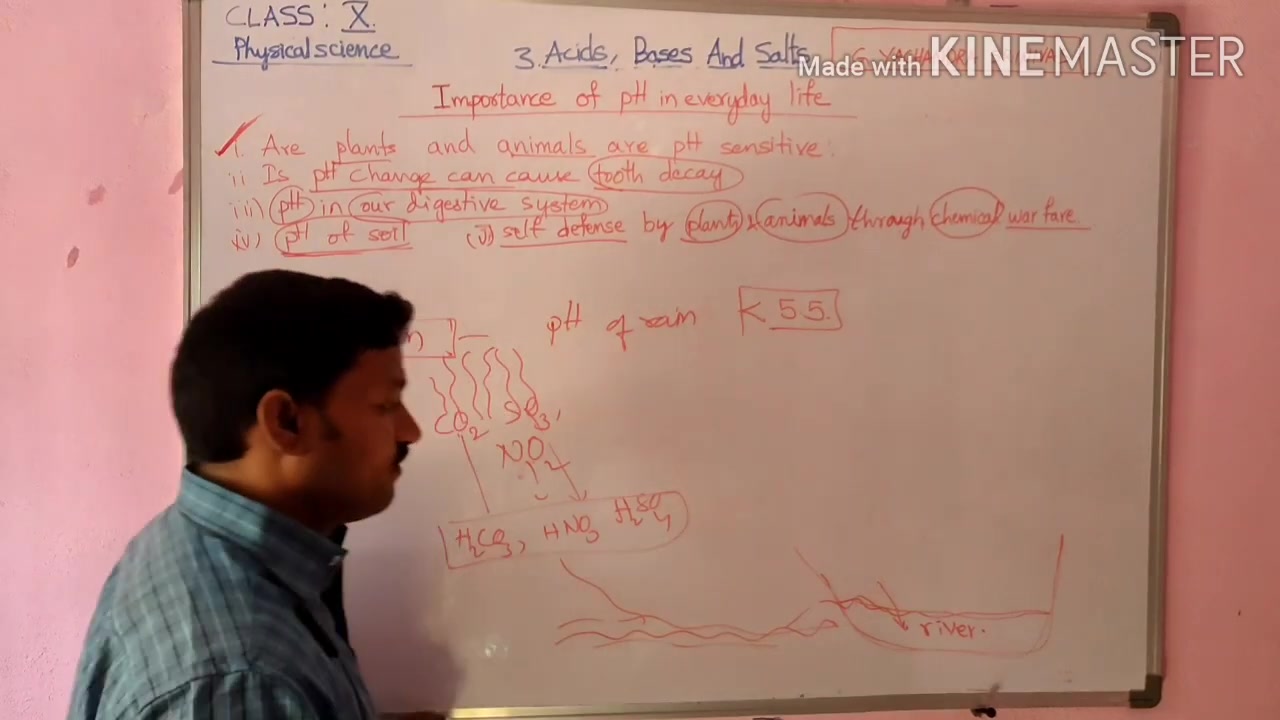 CLASS: X.
Physical science
3. Acids, Bases And Salts
Made with KINEMASTER
Importance of pH in everyday life
i. Are plants and animals are pH sensitive:
ii Is pH change can cause tooth decay
iii) pH in our digestive system
iv) pH of soil (v) self defense by plants & animals through chemical war fare
pH of rain < 5.5.
CO2 SO3,
NO2
H2CO3, HNO3 H2SO4
river.